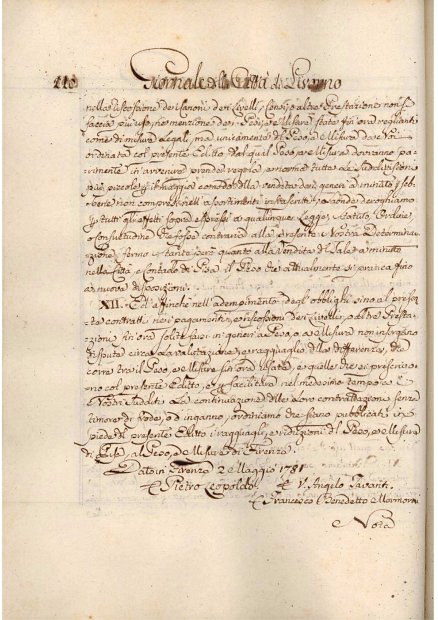 110 Giornale della Città di Livorno
nella riscossione dei Canoni dei Livelli, Censi, o altre Prestazioni non si
faccia più uso, ne menzione dei Pesi, e Misure state fin'ora reputanti
come di misura legali, ma unicamente del Peso, e Misura da Noi
ordinata col presente Editto, dal qual Peso, e Misura dovranno pa-
rimente in avvenire prender regola, e norma tutte le Suddivisioni
più piccole, per maggior comodo della vendita dei generi a minuto, seb-
bene non compresi nell' a
a tutti gli effetti sopra espressi a qualunque Legge, Statuto, Ordine,
o Consuetudine che fosse contraria alla presente Nostra Determina-
zione, fermo stante però quanto alla vendita del Sale a minuto
nella Città, e Contado di Pisa il Peso che attualmente si pratica fino
a nuova disposizione.
XII. Ed affinchè nell' adempimento degli obblighi sino al presen-
te contratti nei pagamenti, e riscossioni dei Livelli, ed altre Presta-
zioni fin' ora solite farsi in generi a Peso, o a Misura non insorgano
dispute circa la valutazione, e ragguaglio della differenza, che
corre tra il Peso, e Misura fin'ora usata, e quelle che si prescrivo-
no col presente Editto, e si faciliti nel medesimo tempo ai
Nostri Sudditi la continuazione delle loro contrattazioni senza
timore di frode, o d'inganno, ordiniamo che siano pubblicati in
piede del presente Editto i ragguagli, e riduzioni del Peso, e Misura
di Pisa, al Peso, e Misura di Firenze.
Dato in Firenze 2 Maggio 1781
Pietro Leopoldo V. Angelo Tavanti
Francesco Benedetto Mormorai
Nota